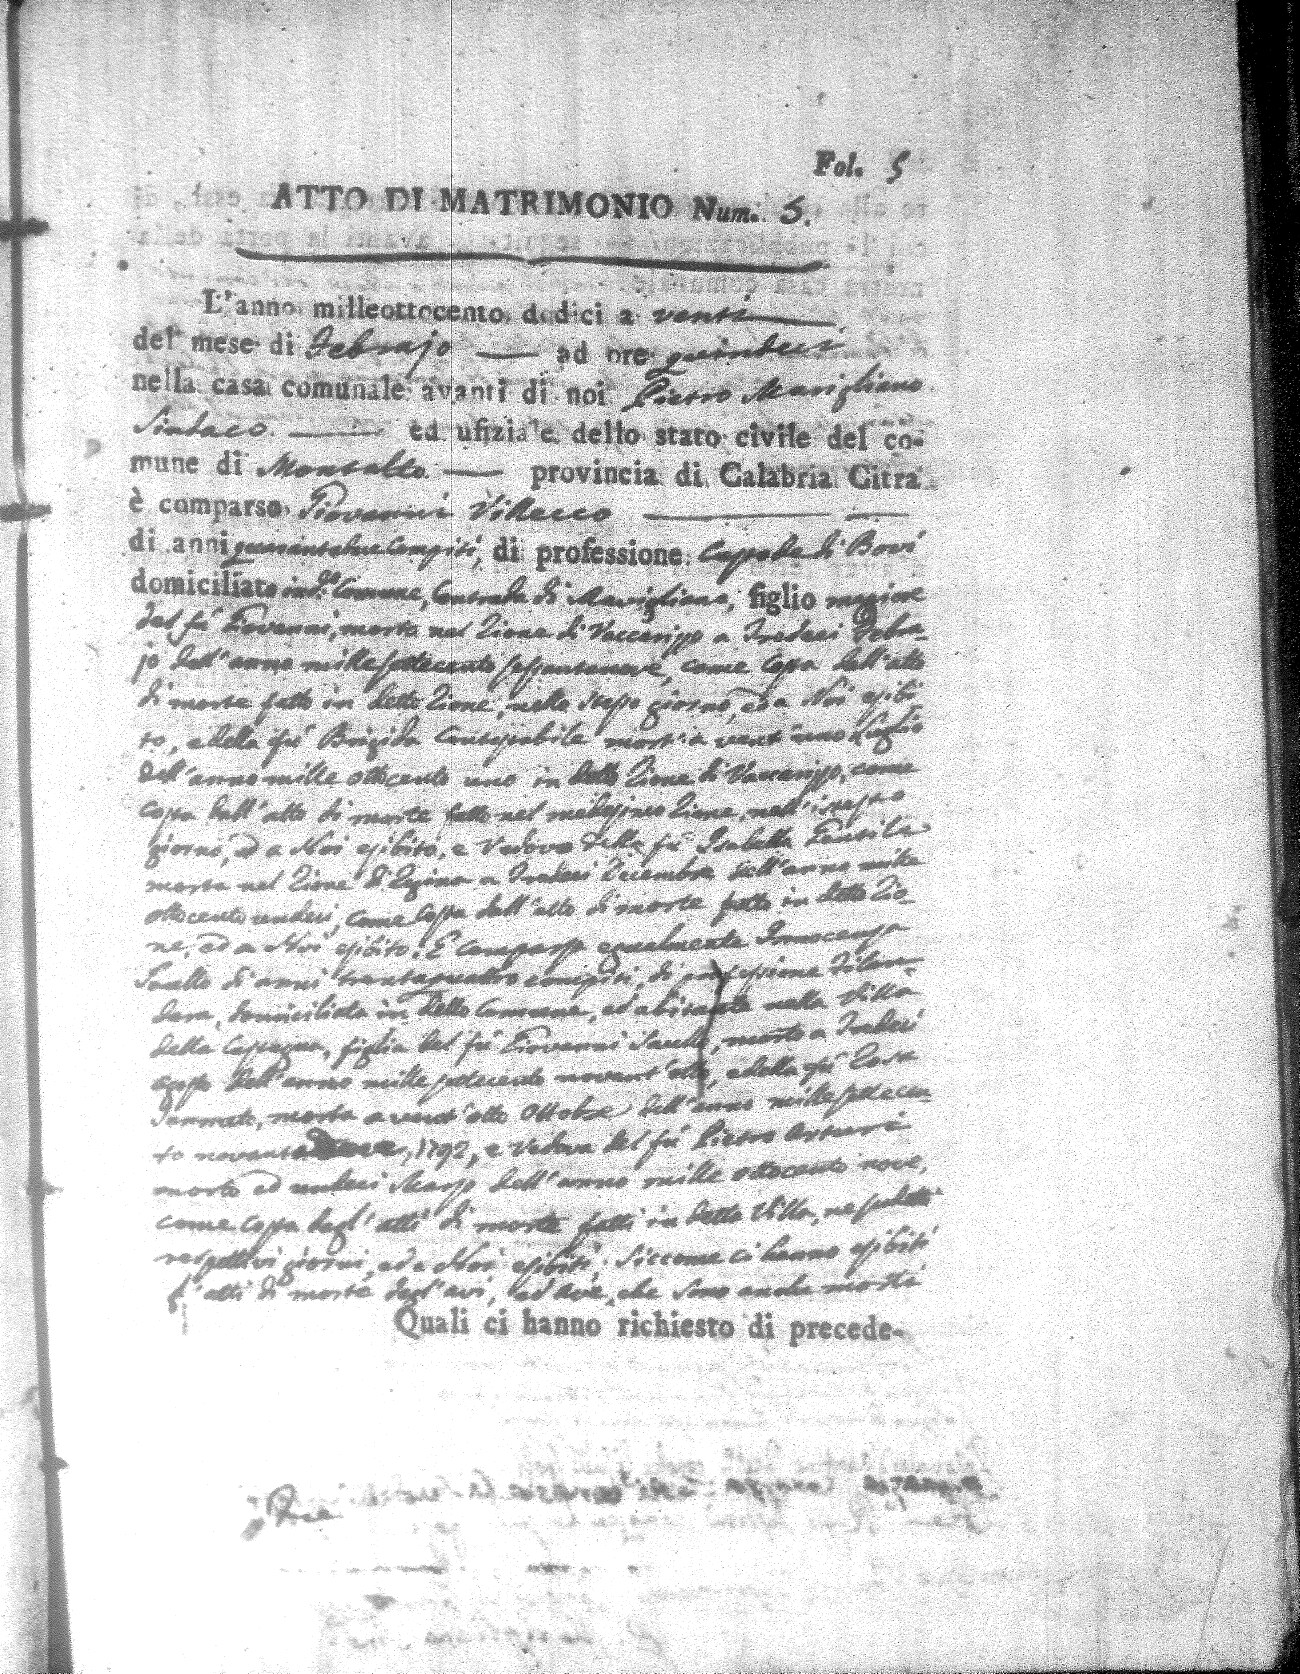 Fol. 5
ATTO DI MATRIMONIO Num. 5.
L'anno milleottocento dodici a venti
del mese di Febrajo ad ore quindeci
nella casa comunale avanti di noi Pietro Marigliano
Sindaco ed ufiziale dello stato civile del co-
mune di Montalto provincia di Calabria Citra
è comparso Giovanni Villecco
di anni compiti, di professione Capode di Bovi
domiciliato in d.o Comune, Contrada di Marigliano, figlio magiore
del fù Giovanni, morto nel Zione di Vaccarizzo a tredeci Febra-
jo dell'anno mille settecento sessantanove, come copia dell'atto
di morte fatto in detto Zione, nello stesso giorno, ed a Noi esibi
to, e della fù Brigida morta a vent'uno Luglio
dell'anno mille ottocento uno in detto Zione di Vaccarizzo, come
copia dell'atto di morte fatto nel medesimo Zione, nell'istesso
giorno, ed a Noi esibito, e Vedovo della fù Isabella
morta nel Zione di a tredeci Decembre dell'anno mille
ottocento undeci, come copia dell'atto di morte fatto in detto Zio-
ne, ed a Noi esibito. E comparsa egualmente Innocenza
di anni trentaquattro compiti, di professione Filan-
dara, domiciliata in detto Comune, ed abitante nella Villa
della, figlia del fù Giovanni, morto a tredeci
dell'anno mille settecento novant'otto, e della fù Rosa
morta a vent'otto Ottobre dell'anno mille settecen-
to novanta due, 1792, e Vedova del fù Pietro Arturi
morto ad undeci Marzo dell'anno mille ottocento nove,
come copia degl'atti di morte fatti in detta Villa, ne sudetti
respettivi giorni, ed a Noi esibiti. Siccome ci hanno esibiti
gl'atti di morte degl'avi, ed ave, che sono anche morti
Quali ci hanno richiesto di precede-